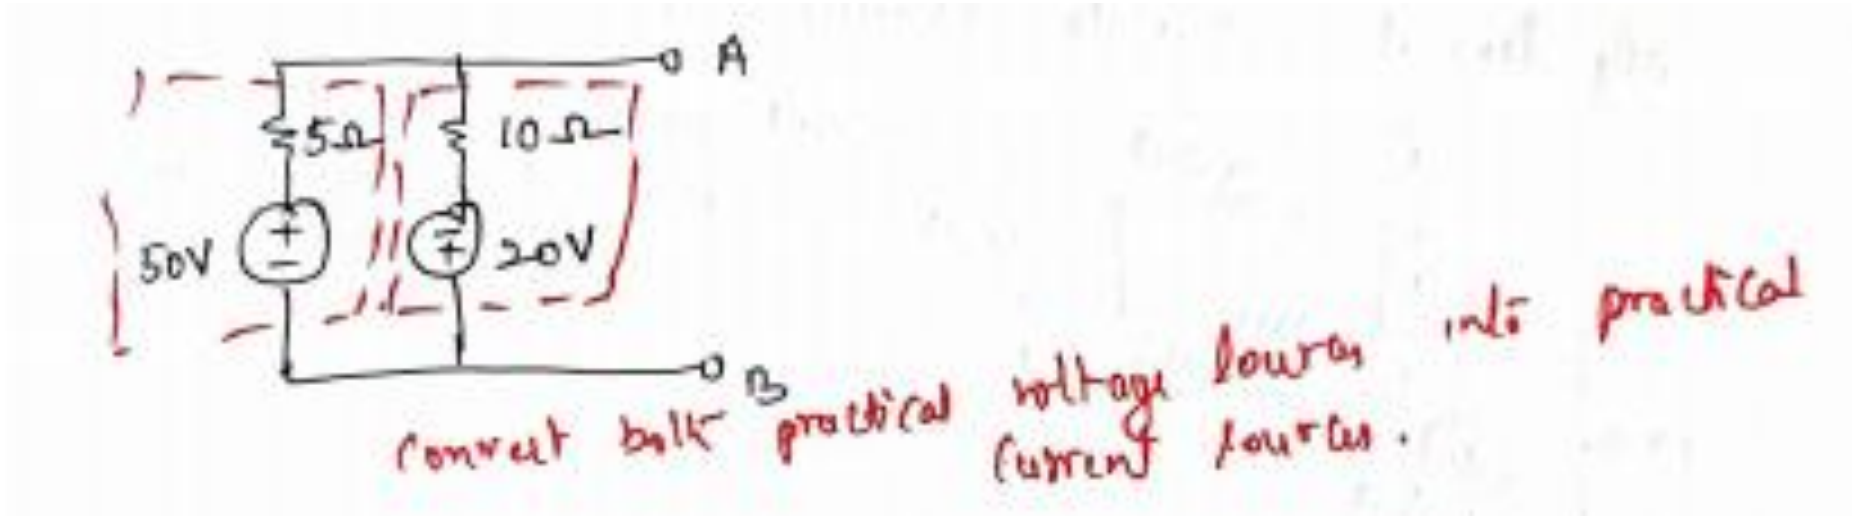 A
5Ω
10Ω
50V
+
-
-
+
20V
B
convert both practical voltage sources into practical
current sources.